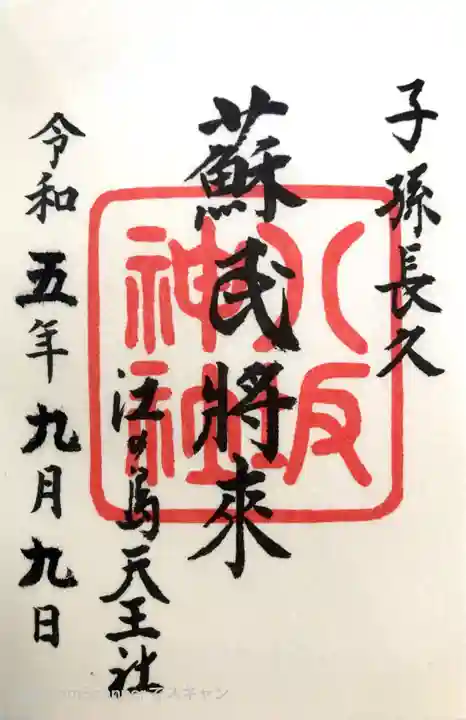 子孫長久
蘇民將來
八坂
神社
江の島天王社
令和五年九月九日
でスキャン